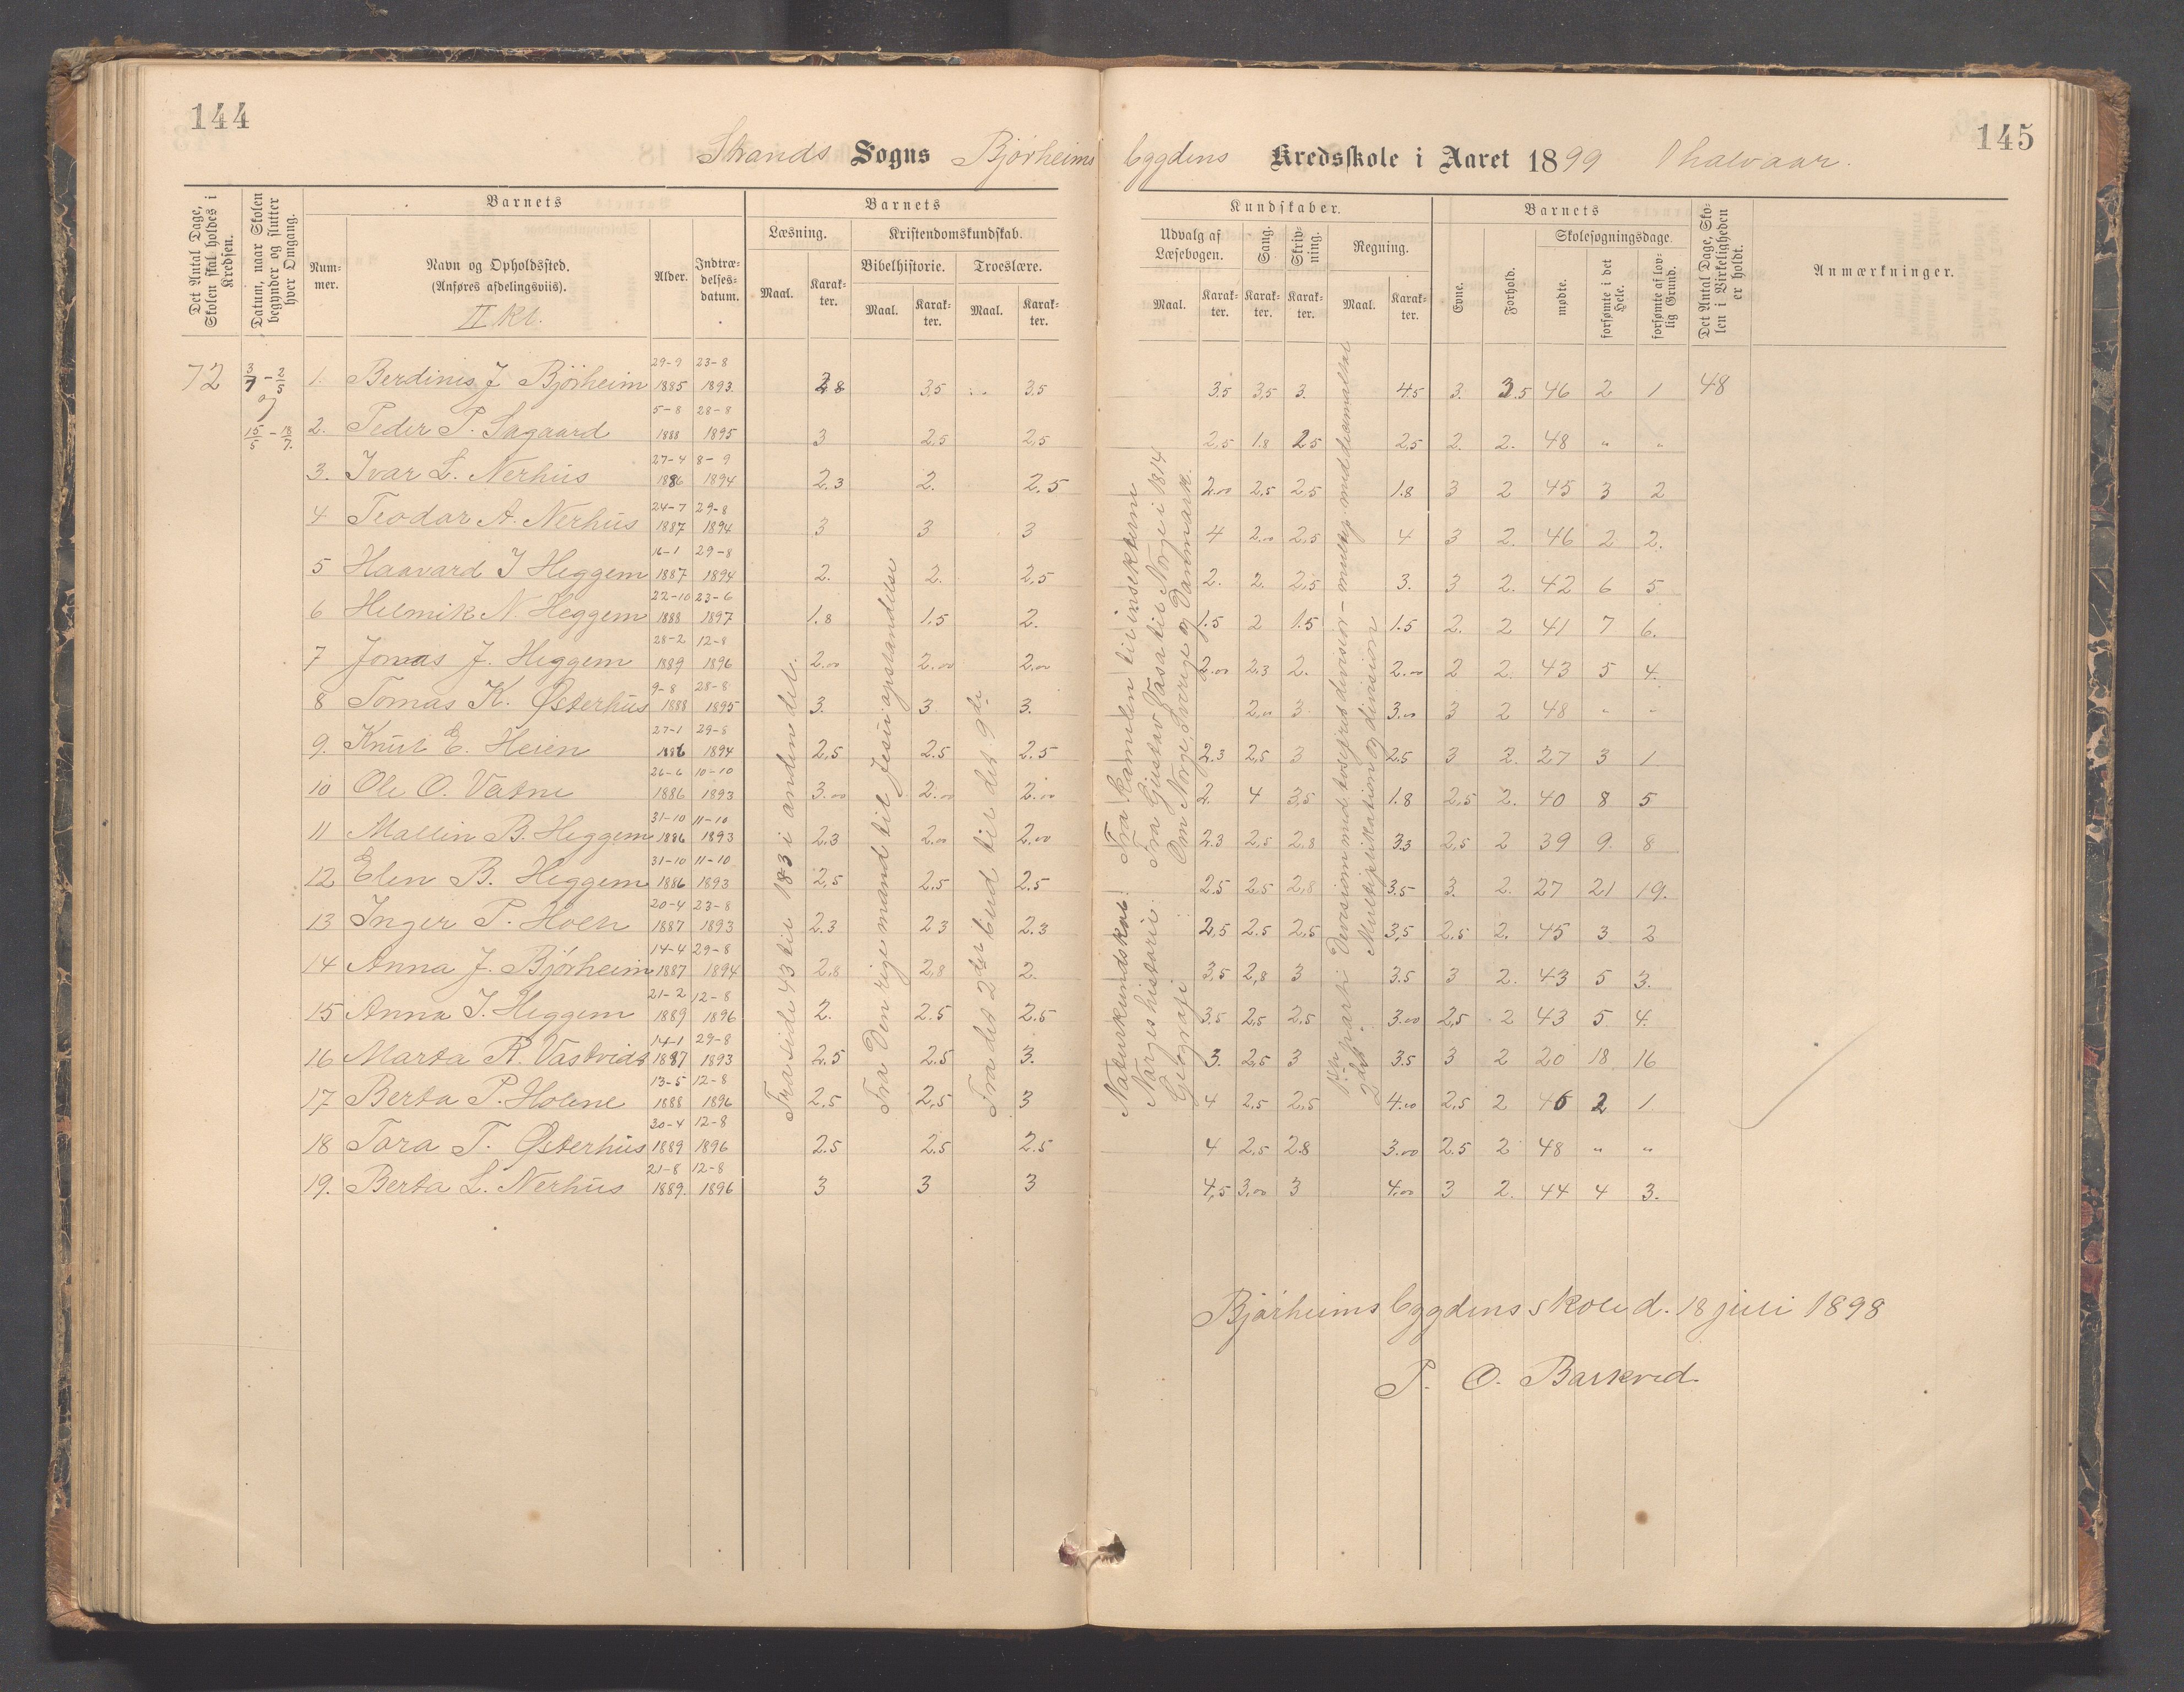 144
145
Strands Sogns Bjørheimsbygdens Kredsskole i Aaret 1899 1 halvaar.
Det Antal Dage, Skolen skal holdes i Kredsen.
Datum, naar Skolen begynder og slutter hver Omgang.
Barnets
Num-mer.
Navn og Opholdssted.
(Anføres afdelingsviis).
II kl.
Alder.
Indtræ-delses-datum.
Barnets
Læsning.
Maal.
Karak-ter.
Kristendomskundskab.
Bibelhistorie.
Maal.
Karak-ter.
Troeslære.
Maal.
Karak-ter.
Kundskaber.
Udvalg af Læsebogen.
Maal.
Karak-ter.
Sang.
Karak-ter.
Skriv-ning.
Karak-ter.
Regning.
Maal.
Karak-ter.
Barnets
Evne.
Forhold.
Skolesøgningsdage.
mødte.
forsømte i det Hele.
forsømte af lov-lig Grund.
Det Antal Dage, Sko-len i Virkeligheden er holdt.
Anmærkninger.
72 3/7 - 2/5 og 15/5 - 18/7.
1. Berdines J. Bjørheim 29-9 1885 23-8 1893 2.8 3,5 3,5 3.5 3,5 3. 4.5 3. 3.5 46 2 1 48
2. Peder P. Sagaard 5-8 1888 28-8 1895 3 2.5 2,5 2,5 1.8 2.5 2,5 2. 2. 48 " "
3. Ivar L. Nerhus 27-4 1886 8-9 1894 2.3 2. 2.5 2.00 2,5 2,5 1.8 3 2 45 3 2
4 Teodor A. Nerhus 24-7 1887 29-8 1894 3 3 3 4 2.00 2,5 4 3 2. 46 2 2.
5 Haavard I Heggem 16-1 1887 29-8 1894 2. 2. 2,5 2. 2. 2,5 3. 3 2. 42 6 5
6 Helmik N. Heggem 22-10 1888 23-6 1897 1.8 1,5 2. 1.5 2 1.5 1.5 2. 2 41 7 6.
7 Jonas J. Heggem 28-2 1889 12-8 1896 2.00 2.00 2.00 2.00 2.3 2. 2.00 2 2. 43 5 4.
8 Tomas K. Østerhus 9-8 1888 28-8 1895 3. 3 3. 2.00 3 3.00 3 2 48 " "
9. Knut E. Heien 27-1 1886 29-8 1894 2,5 2.5 2.5 2.3 2,5 3 2.5 3 2. 27 3 1
10 Ole O. Vatne 26-6 1886 10-10 1893 3.00 2.00 2.00 2. 4 3,5 1.8 2,5 2. 40 8 5
11 Mallin B. Heggem 31-10 1886 11-10 1893 2.3 2.00 2.00 2.3 2.5 2.8 3.3 2,5 2 39 9. 8
12 Elen B. Heggem 31-10 1886 11-10 1893 2,5 2,5 2.5 2.5 2.5 2,8 3.5 3. 2. 27 21 19.
13 Inger P. Holen 20-4 1887 23-8 1893 2.3 2 3 2.3 2,5 2.5 2,5 3,5 2.5 2. 45 3 2
14 Anna J. Bjørheim 14-4 1887 29-8 1894 2,8 2,8 2. 3,5 2,8 3 3.5 3 2. 43 5 3.
15 Anna I. Heggem 21-2 1889 12-8 1896 2. 2.5 2.5 3,5 2,5 2,5 3.00 2,5 2 43 5 4.
16 Marta R. Vastvidt 14-1 1887 29-8 1893 2.5 2.5 3. 3. 2,5 3 3.5 3 2 20 18 16
17 Berta P. Holene 13-5 1888 12-8 1896 2.5 2,5 3 4 2,5 2,5 4.00 2,5 2 46 2 1
18 Tora T. Østerhus 30-4 1889 12-8 1896 2.5 2.5 2.5 4 2,5 2.8 3.00 2.5 2 48 " "
19. Berta L. Nerhus 21-8 1889. 12-8 1896 3 3 3 4,5 3.00 3 4.00 3 2. 44 4 3.
Fra side 43 til 183 i anden del.
Fra Den rige mand til Jesu opstandelse
Fra det 2det bud til det 9de
Naturkundskab: Fra kamelen til insekterne
Norges historie: Fra Gustav Vasa til Norge i 1814
Geografi Om Norge, Sverige og Danmark.
1ste parti: Devision med tosifret divisor - multip. med decimaltal
2det Multiplikation og division
Bjørheimsbygdens skole d. 18 juli 1898
P. O. Barkved.